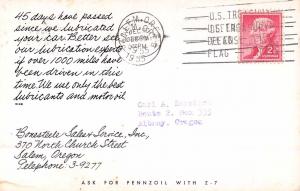 45 days have passed
since we lubricated
your car. Better see
our lubrication experts
if over 1000 miles have
been driven in this
time. We use only the best
lubricants and motor oil.
Bonesteele Sales & Service, Inc.
370 North Church Street
Salem, Oregon
Telephone 3-9277
SALEM, OREG.
1955
U.S.
DEFENSE
FLAG
2¢
Carl A.
Route 2, Box 335
Albany, Oregon
ASK FOR PENNZOIL WITH Z-7